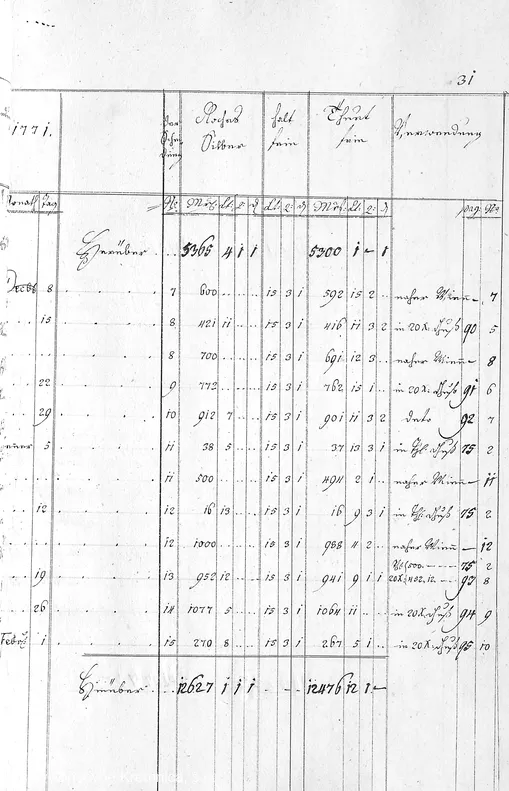 31
1771. Roches Silber halt fein Thuet fein Verwendung
Monath Tag No. Mk: lt: q: d lt: q: d Mk: lt: q: d pag: No
Herüber .. 5365 4 1 1 5300 1 – 1
Decbr 8 7 600 .. 15 3 1 592 15 2 .. naher Wienn – 7
15 8 421 11 .. 15 3 1 416 11 3 2 in 20 X. 90 5
8 700 .. 15 3 1 691 12 3 .. naher Wienn – 8
22 9 772 .. 15 3 1 762 15 1 .. in 20 X. 91 6
29 10 912 7 .. 15 3 1 901 11 3 2 deto 92 7
5 11 38 5 .. 15 3 1 37 13 3 1 in 75 2
11 500 .. 15 3 1 494 2 1 .. naher Wienn – 11
12 12 16 13 .. 15 3 1 16 9 3 1 in 75 2
12 1000 .. 15 3 1 988 4 2 .. naher Wienn – 12
500 – 75 2
19 13 952 12 .. 15 3 1 941 9 1 1 20X. 452.12 – 93 8
26 14 1077 5 .. 15 3 1 1064 11 .. in 20 X. 94 9
Febr 1 15 270 8 .. 15 3 1 267 5 1 .. in 20 X. 95 10
Hinüber .. 12627 1 1 1 – – 12476 12 1 –